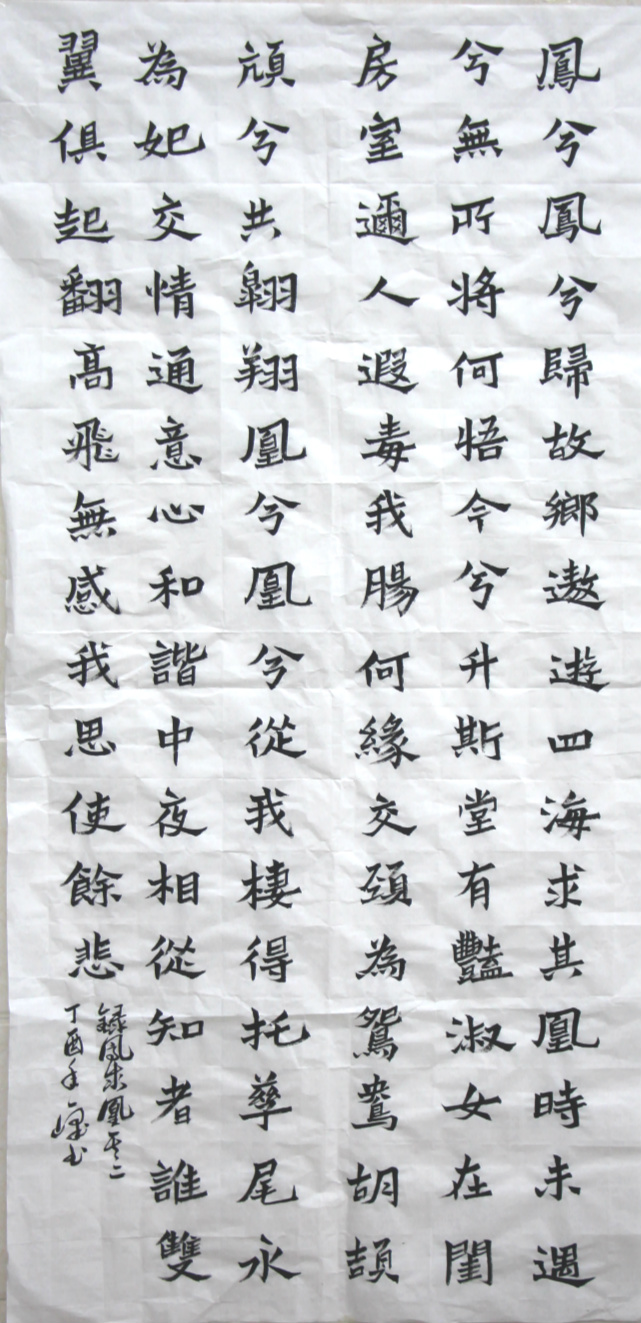 鳳兮鳳兮歸故鄉遨遊四海求其凰時未遇
兮無所將何悟今兮升斯堂有豔淑女在閨
房室邇人遐毒我腸何緣交頸為鴛鴦胡頡
頏兮共翱翔凰兮凰兮從我棲得托孳尾永
為妃交情通意心和諧中夜相從知者誰雙
翼俱起翻高飛無感我思使餘悲
錄鳳求凰其二
丁酉年
書